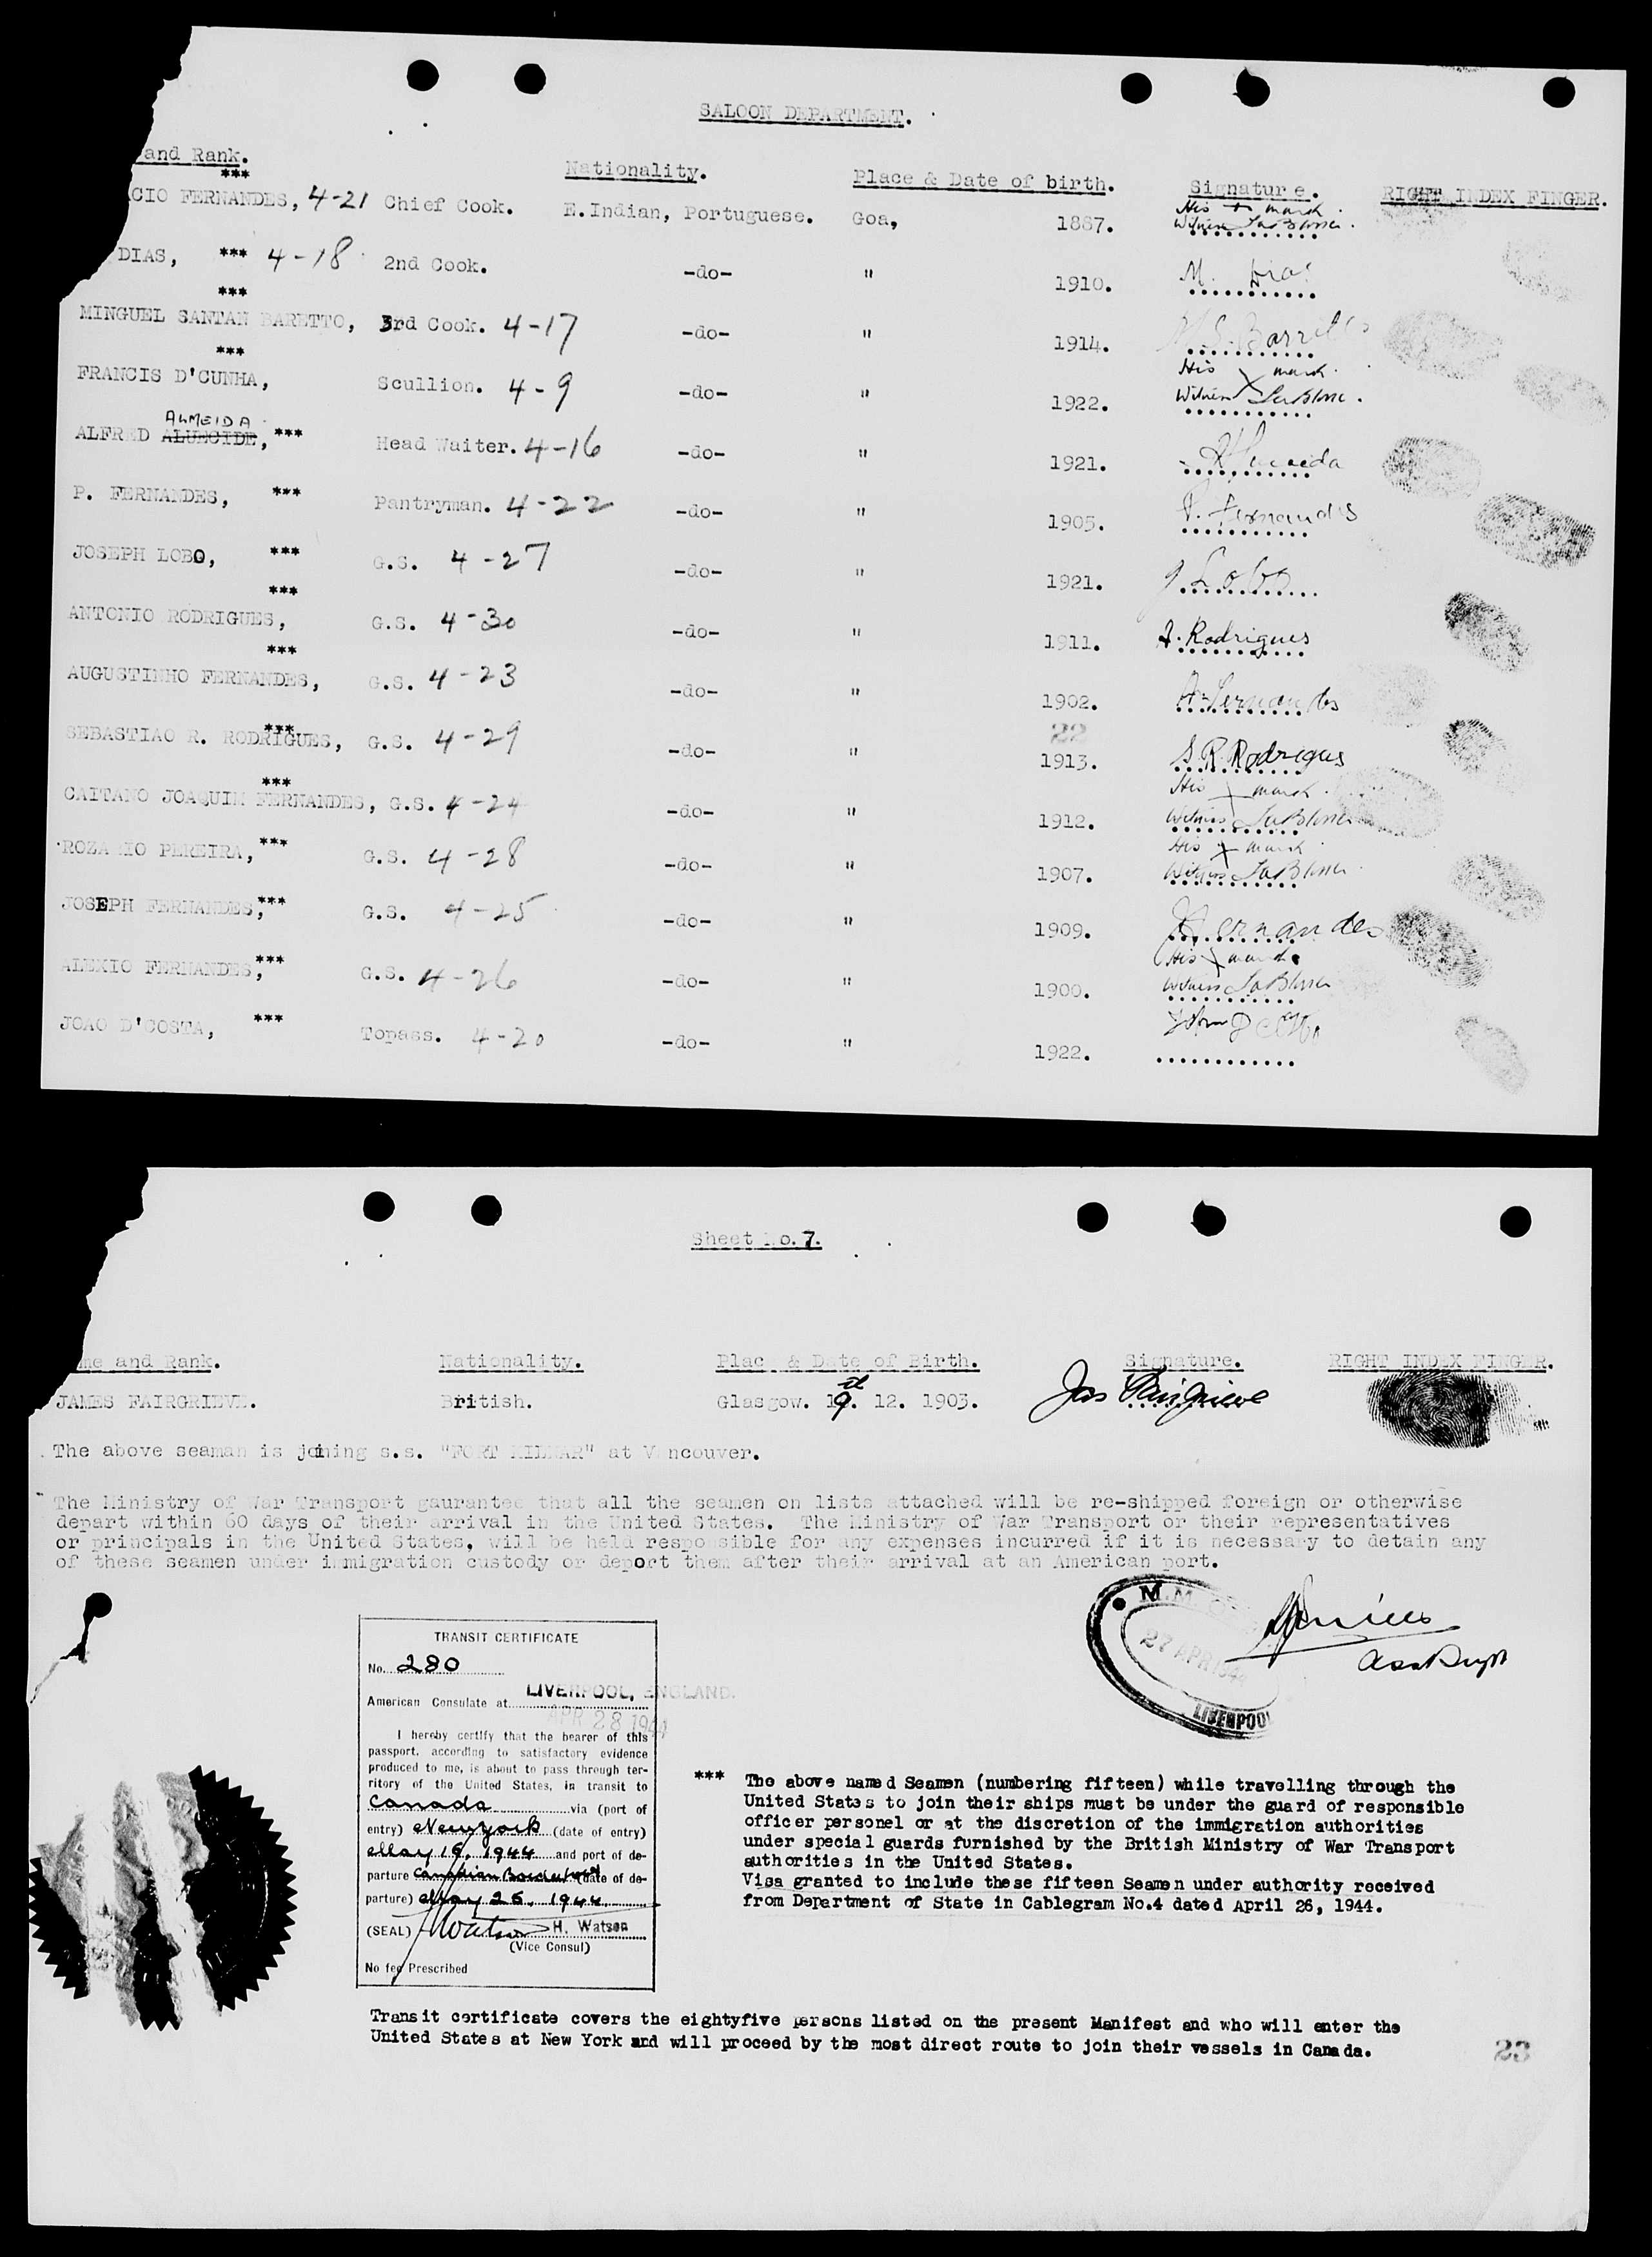 SALOON DEPARTMENT.
and Rank. Nationality. Place & Date of birth. Signature. RIGHT INDEX FINGER.
***
CIO FERNANDES, 4-21 Chief Cook. E.Indian, Portuguese. Goa, 1887. His + mark. Witness
DIAS, *** 4-18 2nd Cook. -do- " 1910. M. Dias
***
MINGUEL SANTAN BARETTO, 3rd Cook. 4-17 -do- " 1914. M.S. Barretto
***
FRANCIS D'CUNHA, Scullion. 4-9 -do- " 1922. His X mark. Witness
ALMEIDA
ALFRED ALUECIDE, *** Head Waiter. 4-16 -do- " 1921. Almeida
P. FERNANDES, *** Pantryman. 4-22 -do- " 1905. P. Fernandes
JOSEPH LOBO, *** G.S. 4-27 -do- " 1921. J. Lobo
***
ANTONIO RODRIGUES, G.S. 4-30 -do- " 1911. A. Rodrigues
***
AUGUSTINHO FERNANDES, G.S. 4-23 -do- " 1902. A. Fernandes
22
***
SEBASTIAO R. RODRIGUES, G.S. 4-29 -do- " 1913. S.R. Rodrigues
***
CAITANO JOAQUIM FERNANDES, G.S. 4-24 -do- " 1912. His X mark. Witness
ROZARIO PEREIRA, *** G.S. 4-28 -do- " 1907. His X mark Witness
JOSEPH FERNANDES, *** G.S. 4-25 -do- " 1909. J Fernandes
ALEXIO FERNANDES, *** G.S. 4-26 -do- " 1900. His X mark Witness
JOAO D'COSTA, *** Topass. 4-20 -do- " 1922. John D
Sheet No.7.
me and Rank. Nationality. Plac & Date of Birth. Signature. RIGHT INDEX FINGER.
JAMES FAIRGRIEVE. British. Glasgow. 19. 12. 1903. Jas Fairgrieve
The above seaman is joining s.s. "FORT KILMAR" at V ncouver.
The Ministry of War Transport gaurantee that all the seamen on lists attached will be re-shipped foreign or otherwise
depart within 60 days of their arrival in the United States. The Ministry of War Transport or their representatives
or principals in the United States, will be held responsible for any expenses incurred if it is necessary to detain any
of these seamen under immigration custody or deport them after their arrival at an American port.
M.M.
27 APR 1944
LIVERPOOL
TRANSIT CERTIFICATE
No. 280
American Consulate at LIVERPOOL, ENGLAND.
APR 28 1944
I hereby certify that the bearer of this
passport, according to satisfactory evidence
produced to me, is about to pass through ter-
ritory of the United States, in transit to
Canada via (port of
entry) New York (date of entry)
May 19, 1944 and port of de-
parture Canadian Border (date of de-
parture) May 25, 1944
(SEAL) Watson H. Watson
(Vice Consul)
No fee Prescribed
*** The above named Seamen (numbering fifteen) while travelling through the
United States to join their ships must be under the guard of responsible
officer personel or at the discretion of the immigration authorities
under special guards furnished by the British Ministry of War Transport
authorities in the United States.
Visa granted to include these fifteen Seamen under authority received
from Department of State in Cablegram No.4 dated April 26, 1944.
Transit certificate covers the eightyfive persons listed on the present Manifest and who will enter the
United States at New York and will proceed by the most direct route to join their vessels in Canada.
23